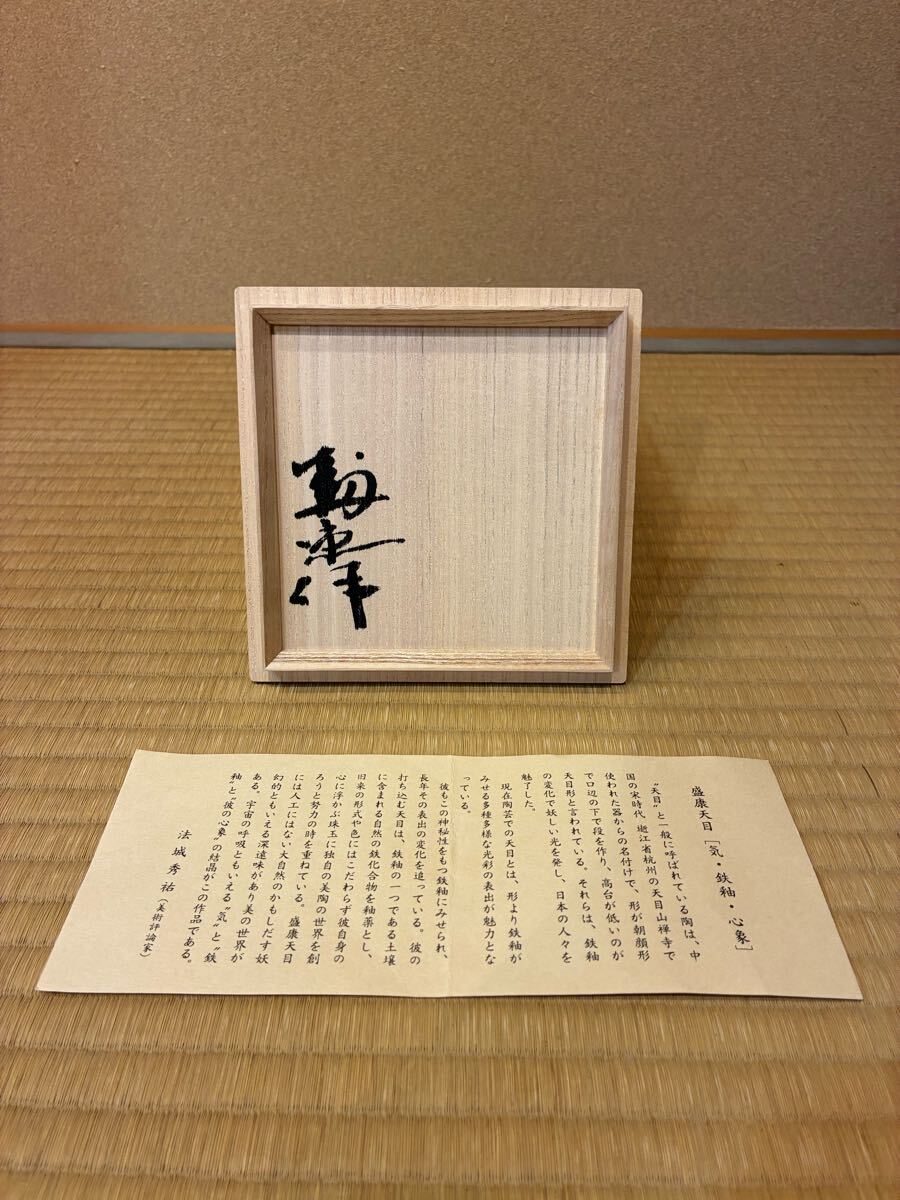 盛康天目［気・鉄釉・心象］
〝天目〟と一般に呼ばれている陶は、中
国の宋時代　逝江省杭州の天目山禅寺で
使われた器からの名付けで、形が朝顔形
で口辺の下で段を作り、高台が低いのが
天目形と言われている。それらは、鉄釉
の変化で妖しい光を発し、日本の人々を
魅了した。
現在陶芸での天目とは、形より鉄釉が
みせる多種多様な光彩の表出が魅力とな
っている。
彼もこの神秘性をもつ鉄釉にみせられ、
長年その表出の変化を追っている。彼の
打ち込む天目は、鉄釉の一つである土壌
に含まれる自然の鉄化合物を釉薬とし、
旧来の形式や色にはこだわらず彼自身の
心に浮かぶ珠玉に独自の美陶の世界を創
ろうと努力の時を重ねている。盛康天目
には人工にはない大自然のかもしだす妖
幻的ともいえる深遠味があり美の世界が
ある。宇宙の呼吸ともいえる〝気〟と〝鉄
釉〟と〝彼の心象〟の結晶がこの作品である。
法城秀祐（美術評論家）